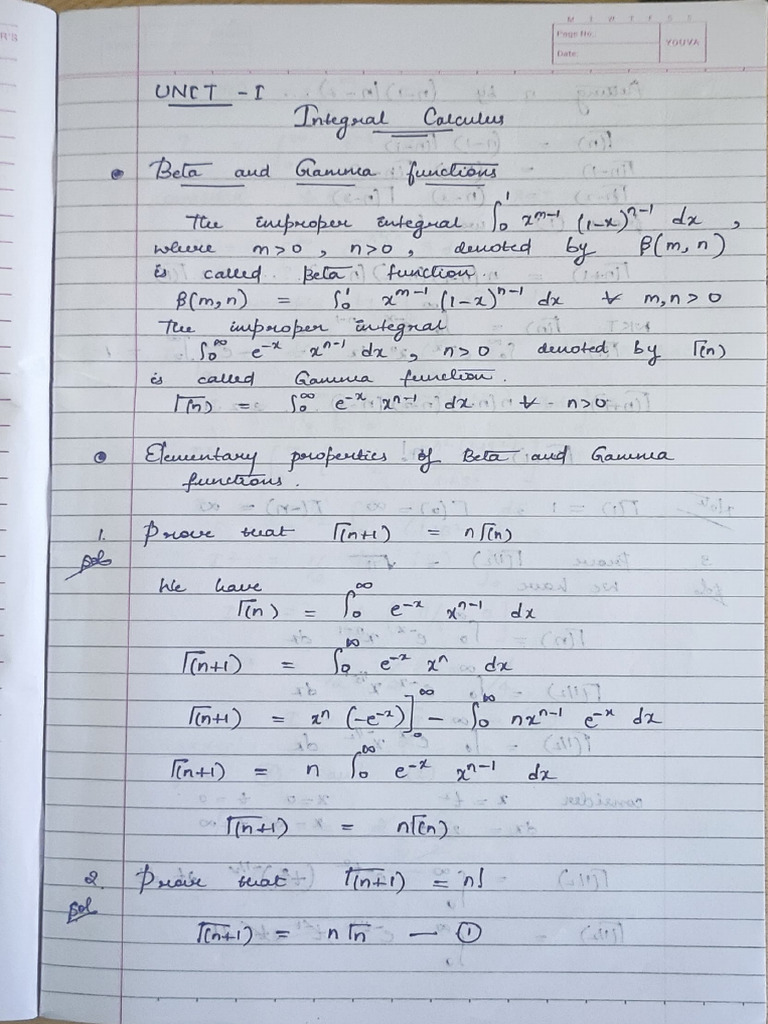 M T W T F S S
Page No.:
YOUVA
Date:
UNIT - I
Integral Calculus
• Beta and Gamma functions
The improper integral ∫₀¹ x^{m-1} (1-x)^{n-1} dx ,
where m>0 , n>0 , denoted by β(m,n)
is called Beta function.
β(m,n) = ∫₀¹ x^{m-1} (1-x)^{n-1} dx ∀ m,n > 0
The improper integral
∫₀^∞ e^{-x} x^{n-1} dx , n>0 denoted by Γ(n)
is called Gamma function.
Γ(n) = ∫₀^∞ e^{-x} x^{n-1} dx ∀ n>0
• Elementary properties of Beta and Gamma
functions.
1. Prove that Γ(n+1) = nΓ(n)
Sol
We have
Γ(n) = ∫₀^∞ e^{-x} x^{n-1} dx
Γ(n+1) = ∫₀^∞ e^{-x} x^n dx
Γ(n+1) = x^n (-e^{-x})]₀^∞ - ∫₀^∞ nx^{n-1} e^{-x} dx
Γ(n+1) = n ∫₀^∞ e^{-x} x^{n-1} dx
Γ(n+1) = nΓ(n)
2. Prove that Γ(n+1) = n!
Sol
Γ(n+1) = n Γn — ①